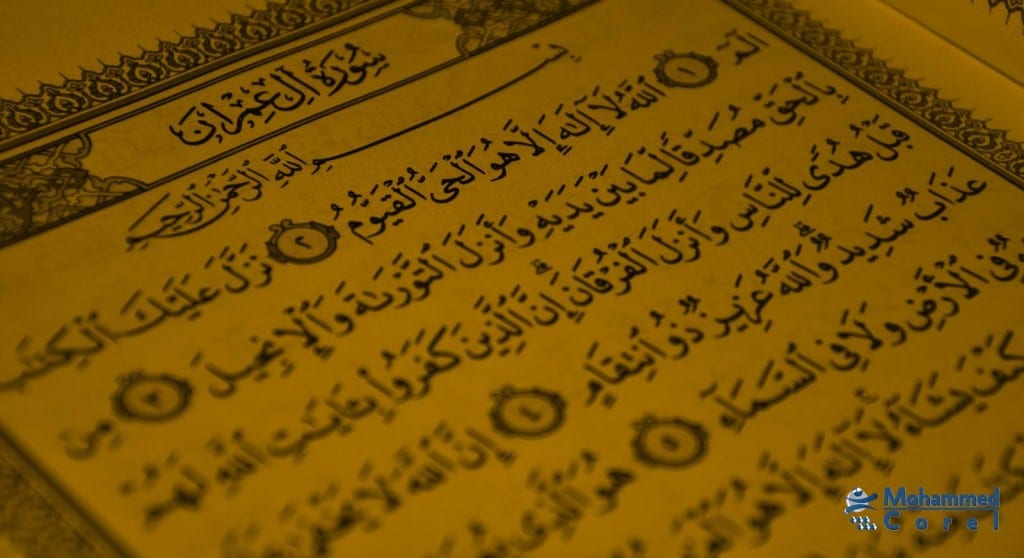 سُورَةُ آلِ عِمْرَانَ
بِسْمِ ٱللَّهِ ٱلرَّحْمَٰنِ ٱلرَّحِيمِ
الٓمٓ ١ ٱللَّهُ لَآ إِلَٰهَ إِلَّا هُوَ ٱلْحَىُّ ٱلْقَيُّومُ ٢ نَزَّلَ عَلَيْكَ ٱلْكِتَٰبَ
بِٱلْحَقِّ مُصَدِّقًا لِّمَا بَيْنَ يَدَيْهِ وَأَنزَلَ ٱلتَّوْرَىٰةَ وَٱلْإِنجِيلَ ٣ مِن
قَبْلُ هُدًى لِّلنَّاسِ وَأَنزَلَ ٱلْفُرْقَانَۗ إِنَّ ٱلَّذِينَ كَفَرُوا۟ بِـَٔايَٰتِ ٱللَّهِ لَهُمْ
عَذَابٌ شَدِيدٌۗ وَٱللَّهُ عَزِيزٌ ذُو ٱنتِقَامٍ ٤ إِنَّ ٱللَّهَ لَا يَخْفَىٰ
فِى ٱلْأَرْضِ وَلَا فِى ٱلسَّمَآءِ ٥ هُوَ ٱلَّذِى
كَيْفَ يَشَآءُۚ لَآ إِلَٰهَ إِلَّا هُوَ
Mohammed
Corel